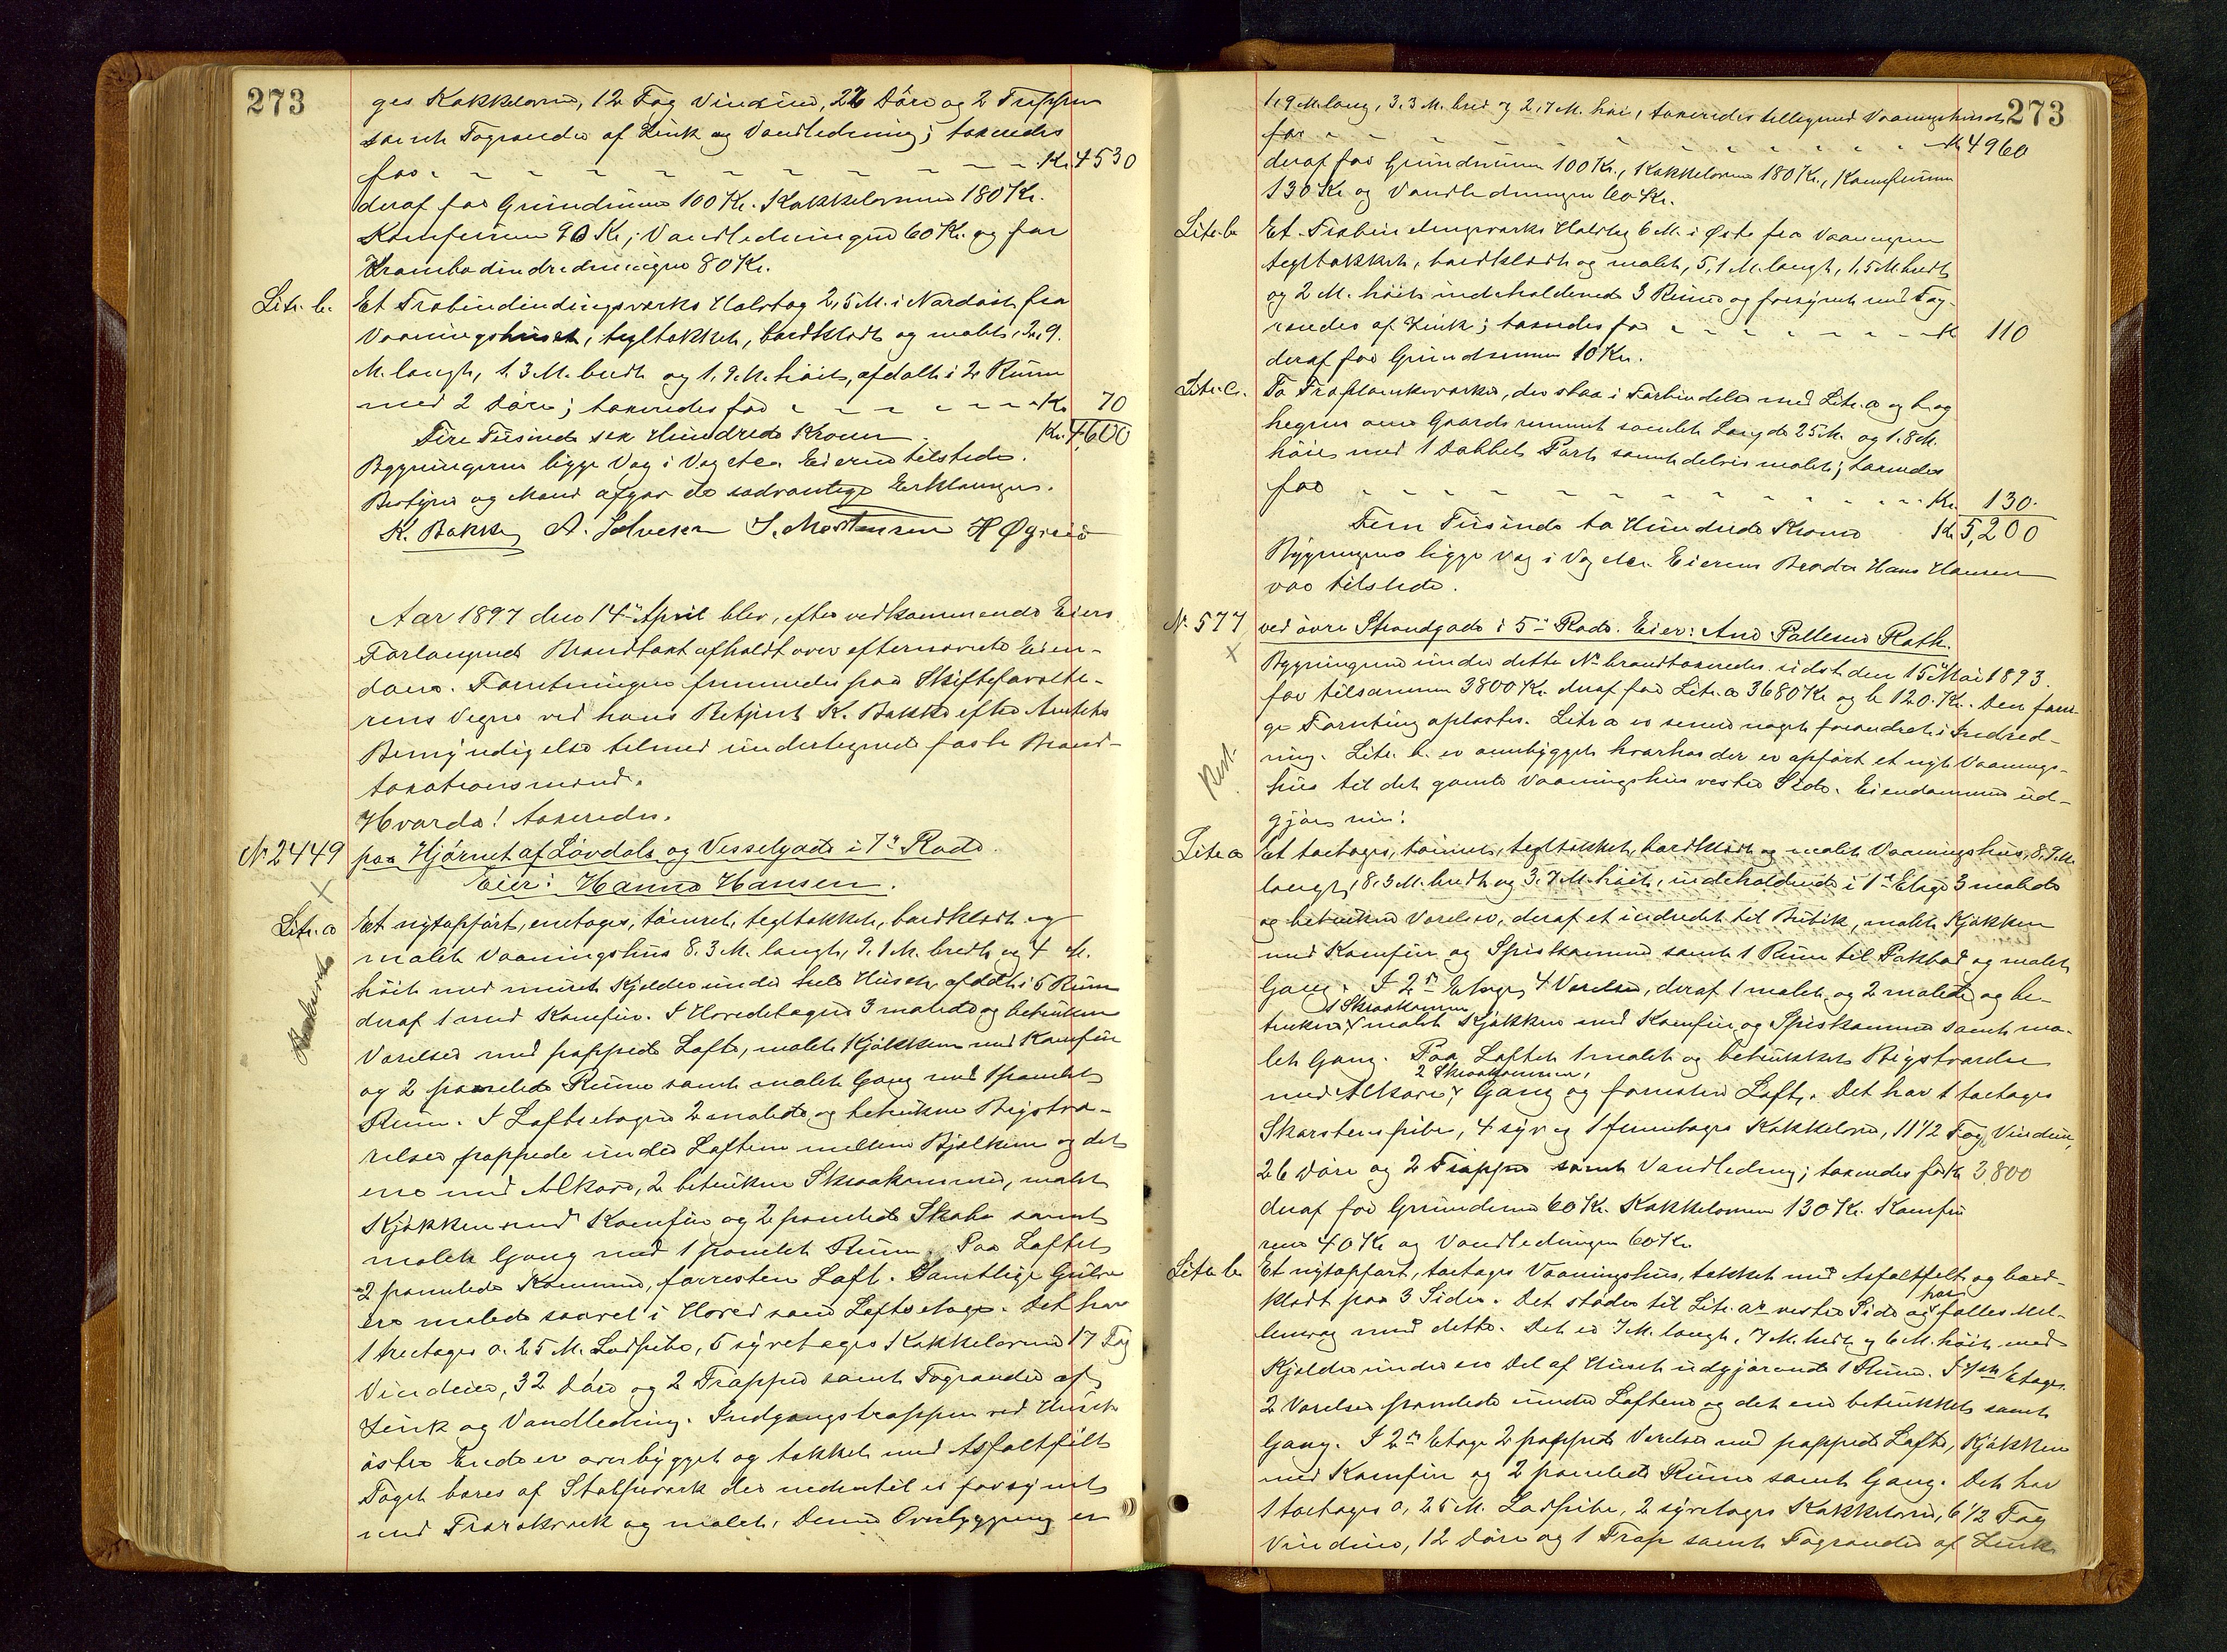 273
ges Kakkelovne, 12 Fag Vinduer, 22 Döre og 2 Trapper
samt Tagrender af Zink og Vandledning; taxeredes
for - - - - - - - - - - Kr. 4530
deraf for Grundmuren 100 Kr. Kakkelovnene 180 Kr.
Komfuren 90 Kr.; Vandledningen 60 Kr. og for
Krambodindredningen 80 Kr.
Litr. b. Et Træbindindingsværks Halvtag 2,5 M. i Nordøst fra
Vaaningshuset, tegltækket, bordklædt og malet, 2,9
M. langt, 1,3 M. bredt og 1,9 M. höit, afdelt i 2 Rum
med 2 Döre; taxeredes for - - - - - - - Kr. 70
Fire Tusinde sex Hundrede Kroner. Kr. 4,600
Bygningerne ligge Væg i Væg etc. Eieren tilstede.
Bestyrer og Mænd afgav de sædvanlige Erklæringer.
K. Bakke A. Solvesen S. Mortensen H Øgreid
Aar 1897 den 14de April blev, efter vedkommende Eiers
Forlangende Brandtaxt afholdt over efternævnte Eien-
domme. Forretningen fremmedes paa Skifteforvalte-
rens Vegne ved hans Betjent K. Bakke efter Amtets
Bemyndigelse tilmed undertegnede faste Brand-
taxationsmænd.
Hvorda! taxeredes.
No 2449 paa Hjörnet af Lövdals og Vesselgade i 7de Rode.
Eier: Hanna Hansen.
Litr. a Et nyopfört, enetages, tömret, tegltækket, bordklædt og
malet Vaaningshus 8,3 M. langt, 9,1 M. bredt og 4 M.
höit med muret Kjelder under hele Huset, afdelt i 5 Rum
deraf 1 med Komfur. I Hovedetagen 3 malede og betrukne
Værelser med pappede Lofte, malet Kjökken med Komfur
og 2 panelede Rum samt malet Gang med 1 panelet
Rum. I Loftsetagen 2 malede og betrukne Bigstvæ-
relser pappede under Loftene mellem Bjelkerne og det
ene med Alkove, 2 betrukne Skraakammere, malet
Kjökken med Komfur og 2 panelede Skabe samt
malet Gang med 1 panelet Rum. Paa Loftet
2 panelede Kammere, forresten Loft. Samtlige Gulve
ere malede saavel i Hoved som Loftsetage. Det har
1 treetages o. 25 M. Ladpibe, 5 syvetages Kakkelovne 17 Fag
Vinduer, 32 Döre og 2 Trapper samt Tagrender af
Zink og Vandledning. Indgangstrappen ved Husets
östre Ende er overbygget og tækket med Asfaltfilt
Taget bæres af Stolpeværk der nedentil er forsynet
med Træværk og malet. Denne Overbygning er
273
1,9 M. lang, 3,3 M. bred og 2,7 M. höi, taxeredes tilligemed Vaaningshuset
for - - - - - - - - - - Kr 4960
deraf for Grundmuren 100 Kr., Kakkelovnene 180 Kr., Komfurene
130 Kr og Vandledningen 60 Kr.
Litr. b Et Træbindingsværks Halvtag 6 M. i Øst fra Vaaningen
tegltækket, bordklædt og malet, 5,1 M. langt, 1,5 M. bredt
og 2 M. höit indeholdende 3 Rum og forsynet med Tag-
render af Zink; taxeredes for - - - - - - - Kr 110
deraf for Grundmuren 10 Kr.
Litr. c. To Træplankeværker, der staa i Forbindelse med Litr. a og b og
hegner om Gaardsrummet samlet Længde 25 M. og 1,8 M.
höie med 1 Dobbelt Port samt delvis malet; taxeredes
for - - - - - - - - - - Kr. 130.
Fem Tusinde to Hundrede Kroner Kr 5,200
Bygningene ligge Væg i Væg etc. Eierens Broder Hans Hansen
var tilstede.
No. 577 ved övre Strandgade i 5te Rode. Eier: Ane Pallesen Rath.
Bygningene under dette No brandtaxeredes sidst den 15de Mai 1893
for tilsammen 3800 Kr. deraf for Litr. a 3680 Kr og b 120 Kr. Den forri-
ge Forretning oplæstes. Litr a er senere noget forandret i Indred-
ning. Litr. b. er ombygget hvorhos der er opfört et nyt Vaanings-
hus til det gamle Vaaningshus vestre Side. Eiendommen ud-
gjör nu:
Litr a Et toetages, tömret, tegltækket, bordklædt og malet Vaaningshus, 8,9 M.
langt, 8,3 M. bredt og 3,7 M. höit, indeholdende i 1ste Etage 3 malede
og betrukne Værelser, deraf et indredet til Butik, malet Kjökken
med Komfur og Spiskammer samt 1 Rum til Pakbod og malet
Gang. I 2den Etage, 4 Værelser, deraf 1 malet og 2 malede og be-
1 Skraakammer
trukne, malet Kjökken med Komfur og Spiskammer samt ma-
let Gang. Paa Loftet 1 malet og betrukket Bigstværelse
2 Skraakammere,
med Alkove, Gang og forresten Loft. Det har 1 toetages
Skorstenspibe, 4 syv og 1 femetages Kakkelovn, 11 1/2 Fag Vinduer,
26 Döre og 2 Trapper samt Vandledning; taxeredes for Kr 3,800
deraf for Grundmuren 60 Kr. Kakkelovnene 130 Kr. Komfu
rene 40 Kr og Vandledningen 60 Kr.
Litr b. Et nyopfört, toetages Vaaningshus, tækket med Asfaltfilt og bord-
klædt paa 3 Sider. Det stöder til Litr. a's vestre Side og har fælles Mel-
lemvæg med dette. Det er 7 M. langt, 7 M. bredt og 6 M. höit med
Kjelder under en Del af Huset udgjörende 1 Rum. I 1ste Etage
2 Værelser panelede under Loftene og det ene betrukket samt
Gang. I 2den Etage 2 pappede Værelser med pappede Lofte, Kjökken
med Komfur og 2 panelede Rum samt Gang. Det har
1 toetages o, 25 M. Ladpibe, 2 syvetages Kakkelovne, 6 1/2 Fag
Vinduer, 12 Döre og 1 Trap samt Tagrender af Zink